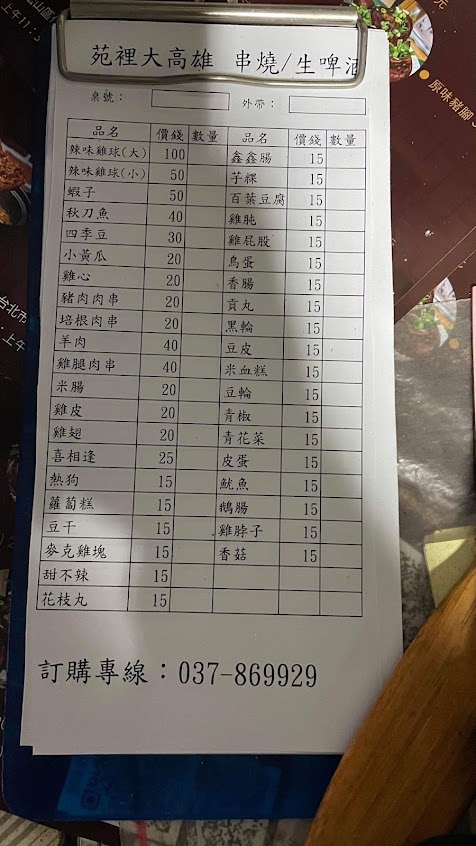 苑裡大高雄 串燒/生啤酒
桌號： 外帶：
品名 價錢 數量 品名 價錢 數量
辣味雞球(大) 100 鑫鑫腸 15
辣味雞球(小) 50 芋粿 15
蝦子 50 百葉豆腐 15
秋刀魚 40 雞肫 15
四季豆 30 雞屁股 15
小黃瓜 20 鳥蛋 15
雞心 20 香腸 15
豬肉肉串 20 貢丸 15
培根肉串 20 黑輪 15
羊肉 40 豆皮 15
雞腿肉串 40 米血糕 15
米腸 20 豆輪 15
雞皮 20 青椒 15
雞翅 20 青花菜 15
喜相逢 25 皮蛋 15
熱狗 15 魷魚 15
蘿蔔糕 15 鵝腸 15
豆干 15 雞脖子 15
麥克雞塊 15 香菇 15
甜不辣 15
花枝丸 15
訂購專線：037-869929
原味豬腳
台北市
上午